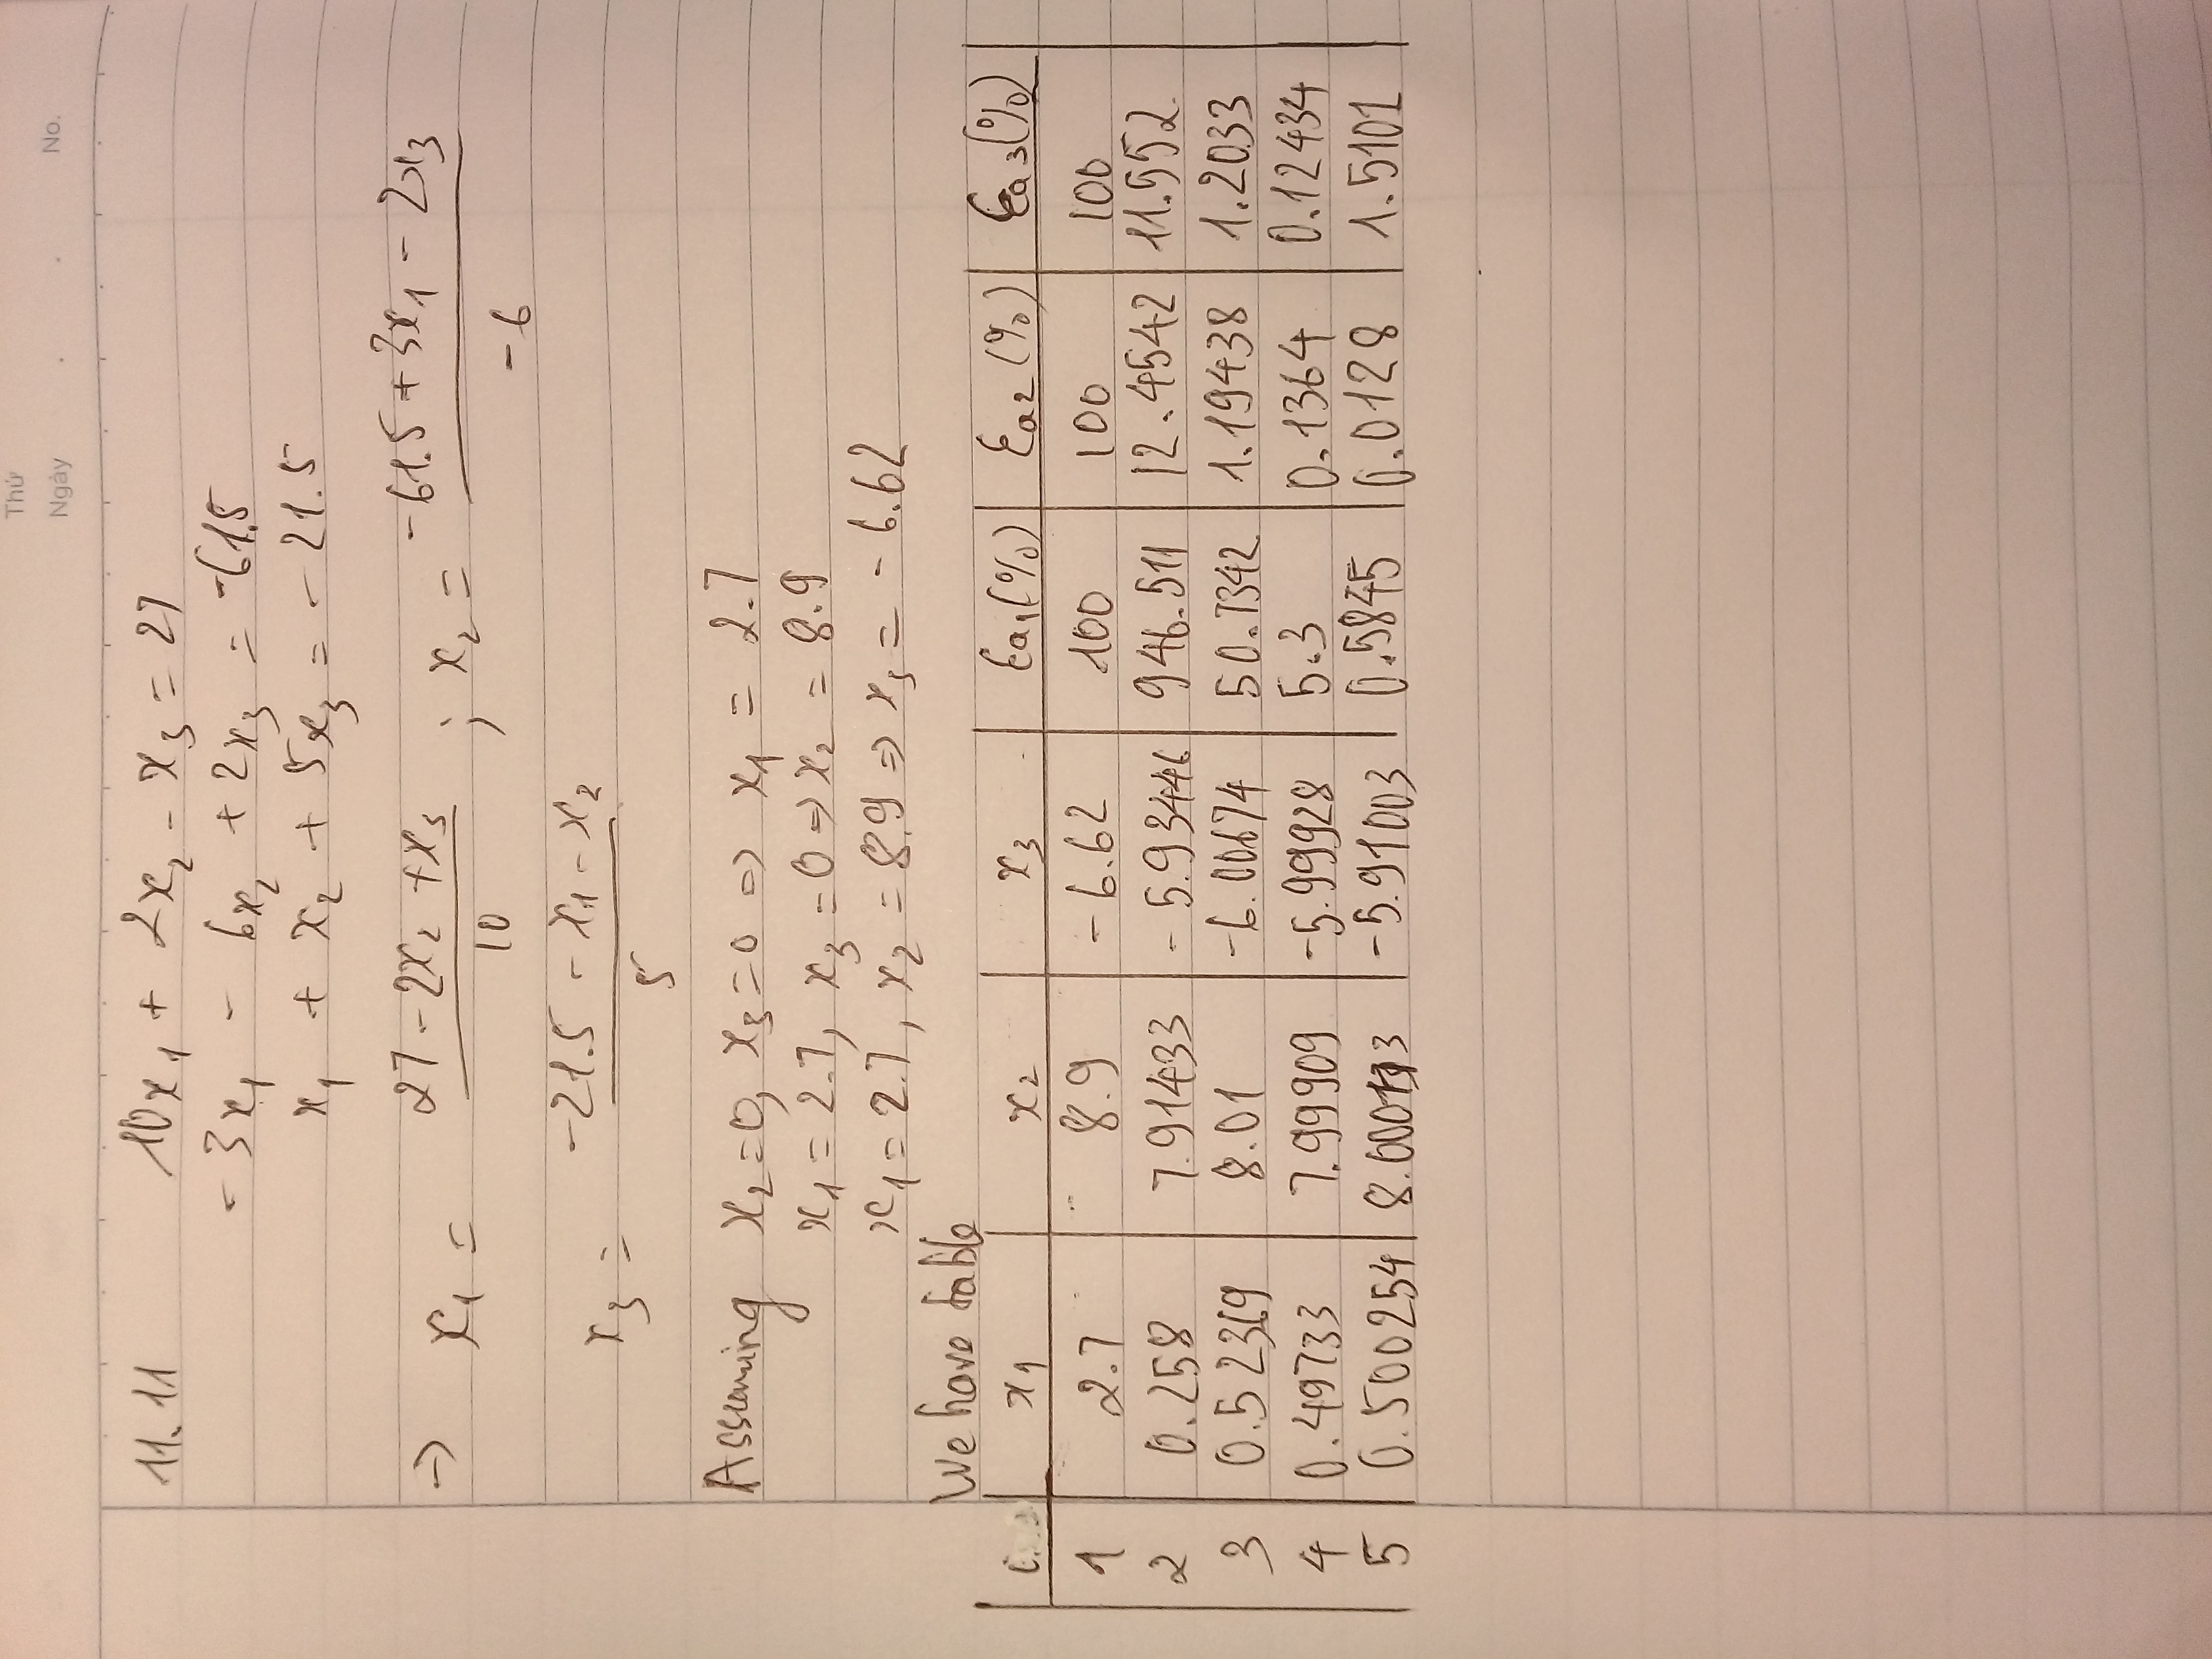 Thứ
Ngày . . No.
11.11 10x₁ + 2x₂ - x₃ = 27
- 3x₁ - 6x₂ + 2x₃ = -61.5
x₁ + x₂ + 5x₃ = - 21.5
→ x₁ = (27 - 2x₂ + x₃)/10 ; x₂ = (-61.5 + 3x₁ - 2x₃)/-6
x₃ = (-21.5 - x₁ - x₂)/5
Assuming x₂ = 0, x₃ = 0 => x₁ = 2.7
x₁ = 2.7, x₃ = 0 => x₂ = 8.9
x₁ = 2.7, x₂ = 8.9 => x₃ = - 6.62
We have table
x₁ x₂ x₃ Ea₁(%) Ea₂(%) Ea₃(%)
1 2.7 8.9 - 6.62 100 100 100
2 0.258 7.91433 - 5.93446 946.511 12.4542 11.552
3 0.52369 8.01 -6.00674 50.7342 1.19438 1.2033
4 0.49733 7.99909 -5.99928 5.3 0.1364 0.12434
5 0.500254 -5.91003 0.5845 0.0128 1.5101